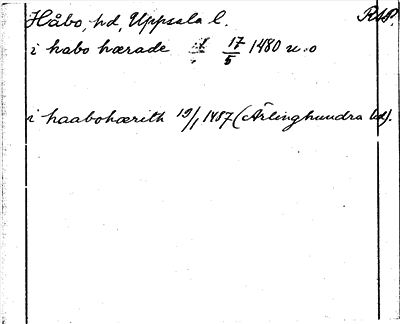 Håbo, hd, Uppsala l. RAP.
i habo hærade 17/5 1480 u.o
i haabohærith 19/1 1487 (Ärlinghundra hd).